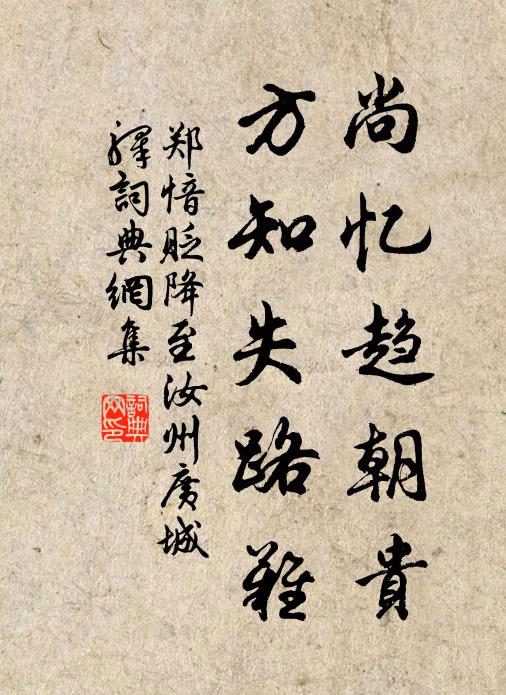 尚忆趋朝贵
方知失路难
郑愔贬降至汝州廣城
驛詞典網集
詞典网印